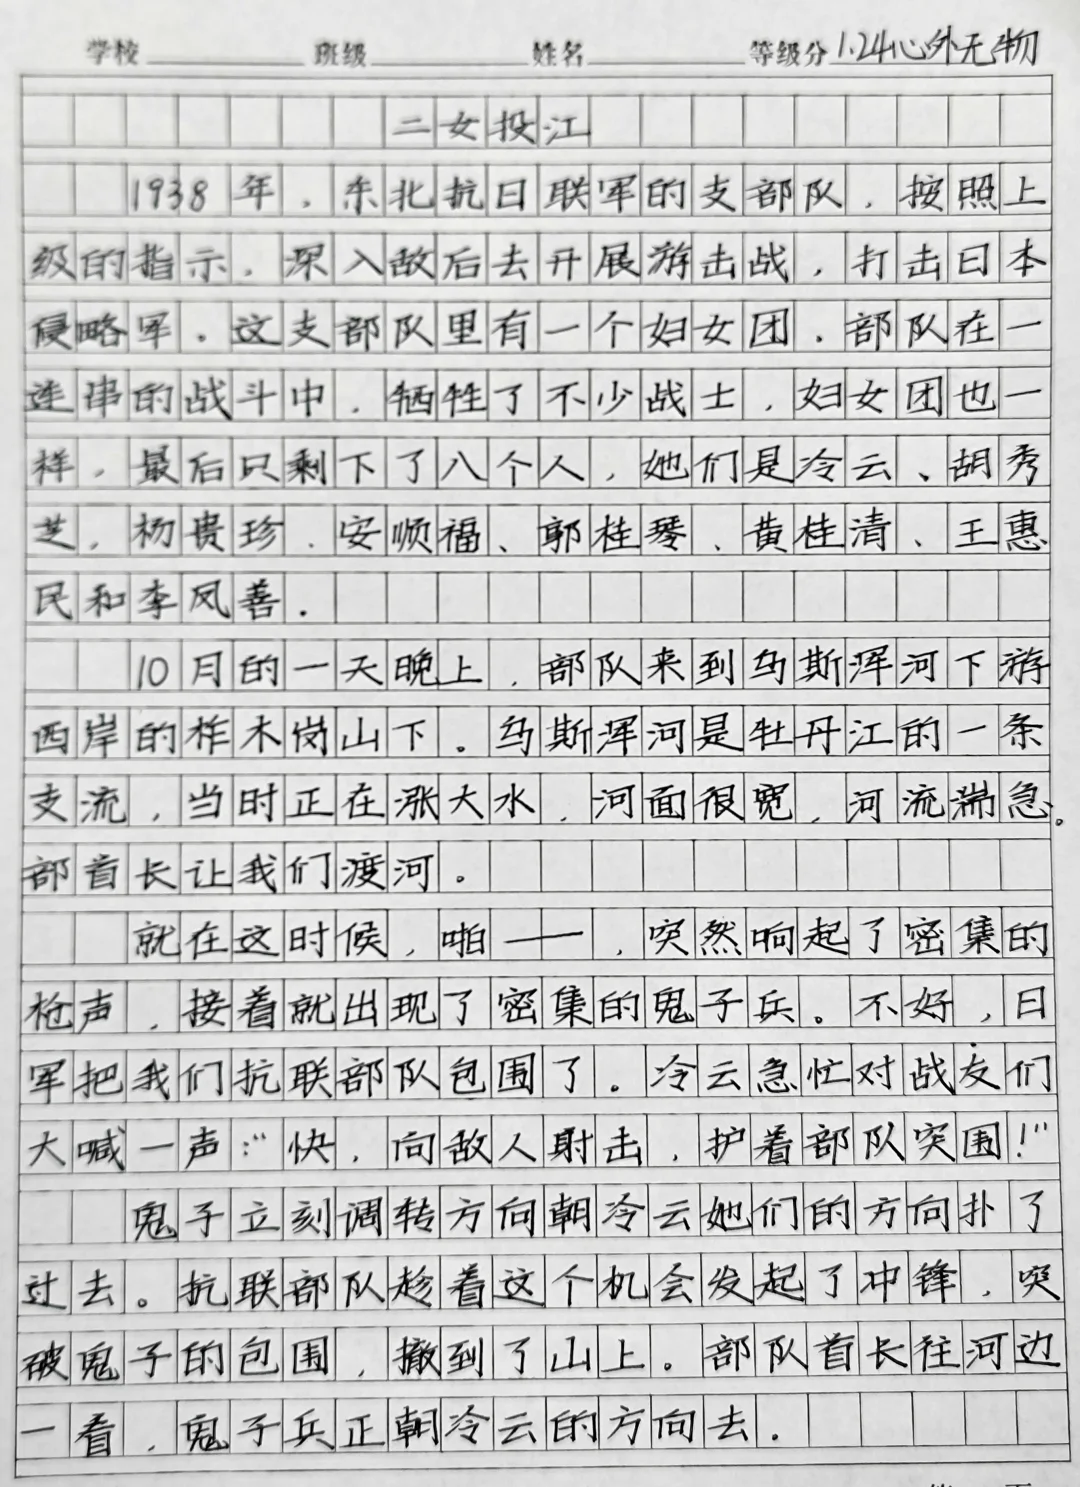 学校 班级 姓名 等级分 1.24心外无物
二女投江
1938年，东北抗日联军的支部队，按照上
级的指示，深入敌后去开展游击战，打击日本
侵略军。这支部队里有一个妇女团．部队在一
连串的战斗中，牺牲了不少战士，妇女团也一
样，最后只剩下了八个人，她们是冷云、胡秀
芝，杨贵珍、安顺福、郭桂琴、黄桂清、王惠
民和李凤善．
10月的一天晚上，部队来到乌斯浑河下游
西岸的柞木岗山下。乌斯浑河是牡丹江的一条
支流，当时正在涨大水，河面很宽，河流湍急。
部首长让我们渡河。
就在这时候，啪——，突然响起了密集的
枪声，接着就出现了密集的鬼子兵。不好，日
军把我们抗联部队包围了。冷云急忙对战友们
大喊一声：“快，向敌人射击，护着部队突围！”
鬼子立刻调转方向朝冷云她们的方向扑了
过去。抗联部队趁着这个机会发起了冲锋，突
破鬼子的包围，撤到了山上。部队首长往河边
一看，鬼子兵正朝冷云的方向去．